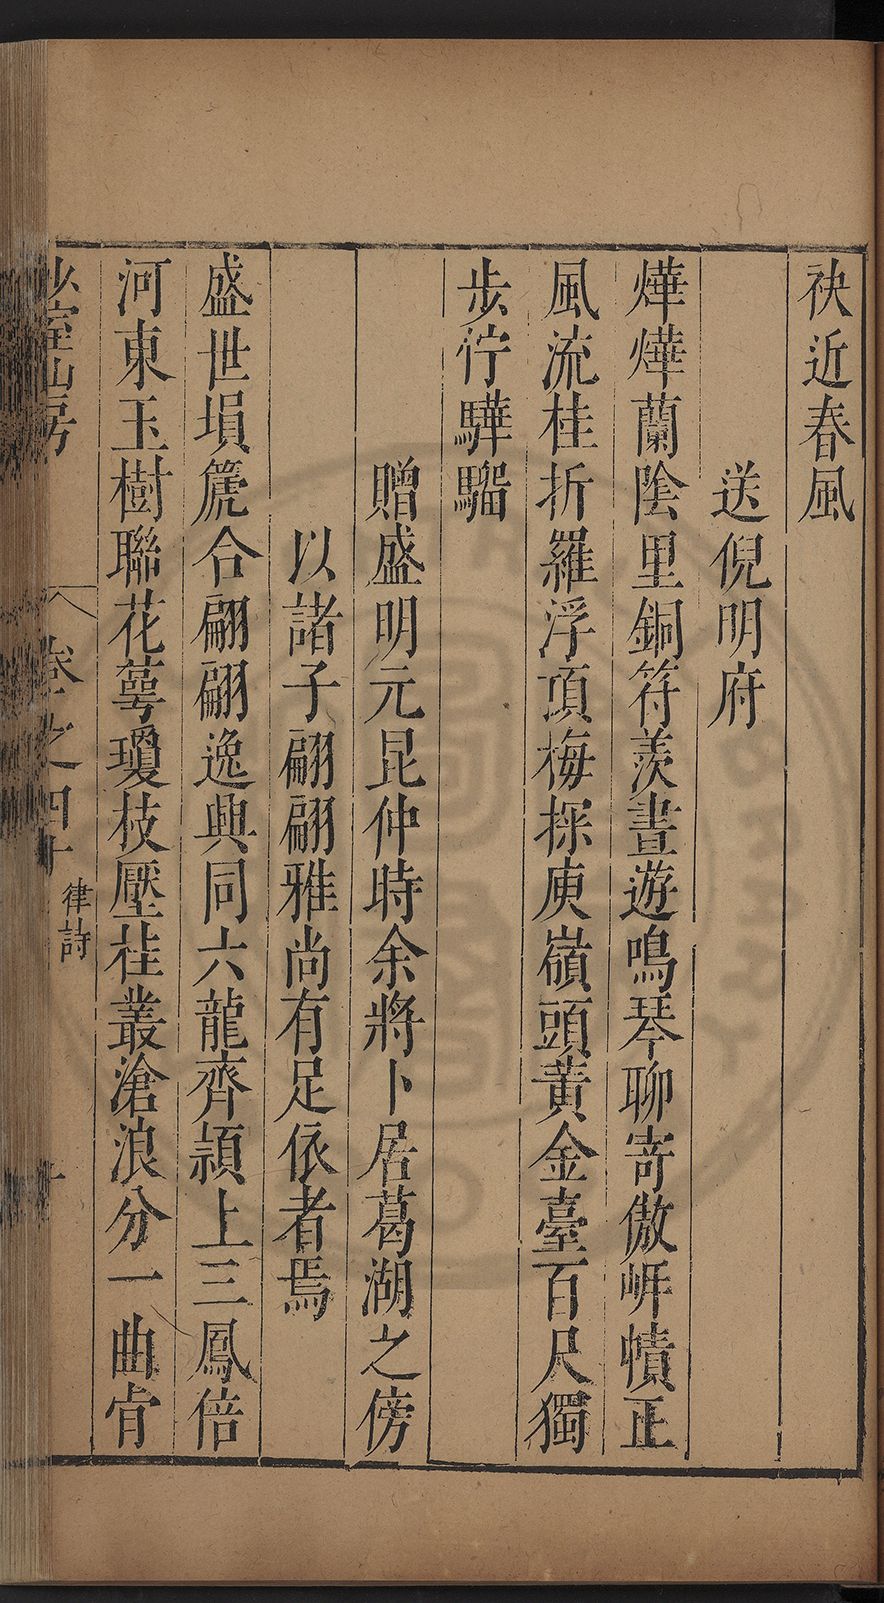 袂近春風
送倪明府
燁燁蘭陰里銅符羨晝遊鳴琴聊寄傲岸幘正
風流桂折羅浮頂梅探庾嶺頭黃金臺百尺獨
步佇驊騮
贈盛明元昆仲時余將卜居葛湖之傍
以諸子翩翩雅尚有足依者焉
盛世塤箎合翩翩逸興同六龍齊頴上三鳳倍
河東玉樹聯花萼瓊枝壓桂叢滄浪分一曲肯
少室山房
卷之四十
律詩